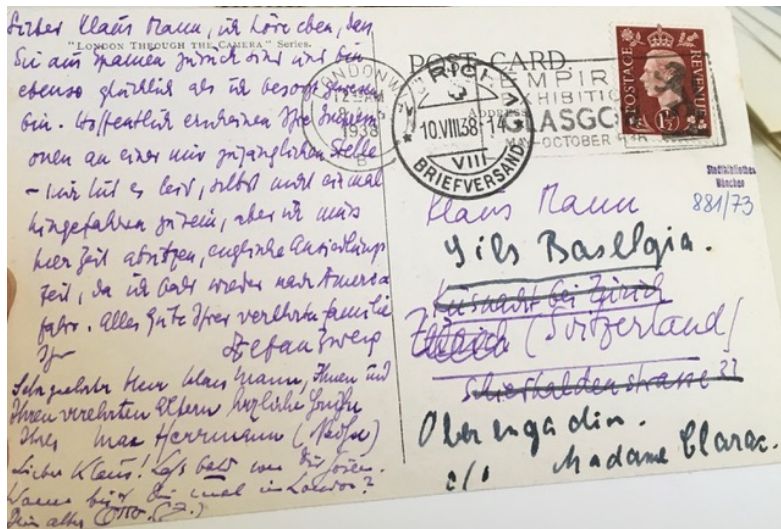 Lieber Klaus Mann, ich höre eben, dass
"LONDON THROUGH THE CAMERA" Series.
Sie aus Spanien zurück sind und bin
ebenso glücklich als ich besorgt gewesen
bin. Hoffentlich erscheinen Ihre
an einer mir zugänglichen Stelle
– mir tut es leid, selbst nicht einmal
hingefahren zu sein, aber ich muss
hier Zeit absitzen, englische Ansiedlungs
zeit, da ich bald wieder nach America
fahre. Alles Gute Ihrer verehrten Familie
Ihr Stefan Zweig
Sehr geehrter Herr Klaus Mann, Ihnen und
Ihren verehrten Eltern herzliche Grüße
Ihres Max Herrmann (Neiße)
Lieber Klaus! Lass bald von Dir hören.
Wann bist Du mal in London?
Dein alter Otto. (Z.)
POST CARD.
ADDRESS
LONDON W
12 AM
1938
B
ZÜRICH
10.VIII.38-14
VIII
BRIEFVERSAND
EMPIRE
EXHIBITION
GLASGOW
MAY-OCTOBER
POSTAGE
REVENUE
1½
Stadtbibliothek
München
881/73
Klaus Mann
Sils Baselgia.
Küsnacht bei Zürich
Zürich (Switzerland)
Schiedhaldenstrasse 33
Oberengadin.
c/o Madame Clarac.